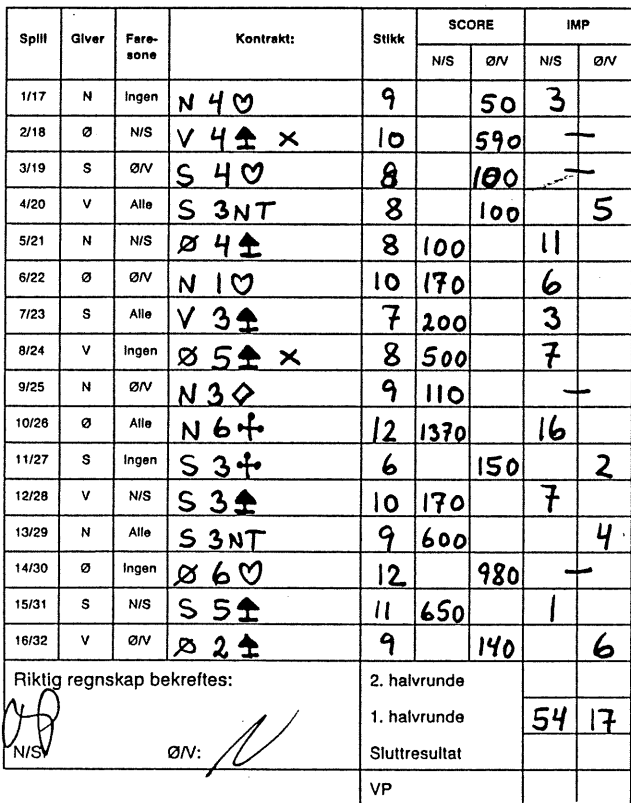 Spill Giver Fare-sone Kontrakt: Stikk SCORE IMP
N/S Ø/V N/S Ø/V
1/17 N Ingen N 4 ♡ 9 50 3
2/18 Ø N/S V 4 ♠ × 10 590 —
3/19 S Ø/V S 4 ♡ 8 100 —
4/20 V Alle S 3NT 8 100 5
5/21 N N/S Ø 4 ♠ 8 100 11
6/22 Ø Ø/V N 1 ♡ 10 170 6
7/23 S Alle V 3 ♠ 7 200 3
8/24 V Ingen Ø 5 ♠ × 8 500 7
9/25 N Ø/V N 3 ◇ 9 110 —
10/26 Ø Alle N 6 ♣ 12 1370 16
11/27 S Ingen S 3 ♣ 6 150 2
12/28 V N/S S 3 ♠ 10 170 7
13/29 N Alle S 3NT 9 600 4
14/30 Ø Ingen Ø 6 ♡ 12 980 —
15/31 S N/S S 5 ♠ 11 650 1
16/32 V Ø/V Ø 2 ♠ 9 140 6
Riktig regnskap bekreftes: 2. halvrunde
1. halvrunde 54 17
N/S: Ø/V: Sluttresultat
VP